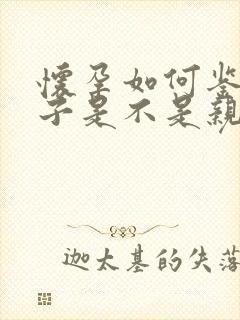 懷孕如何鉴
子是不是親
迦太基的失落